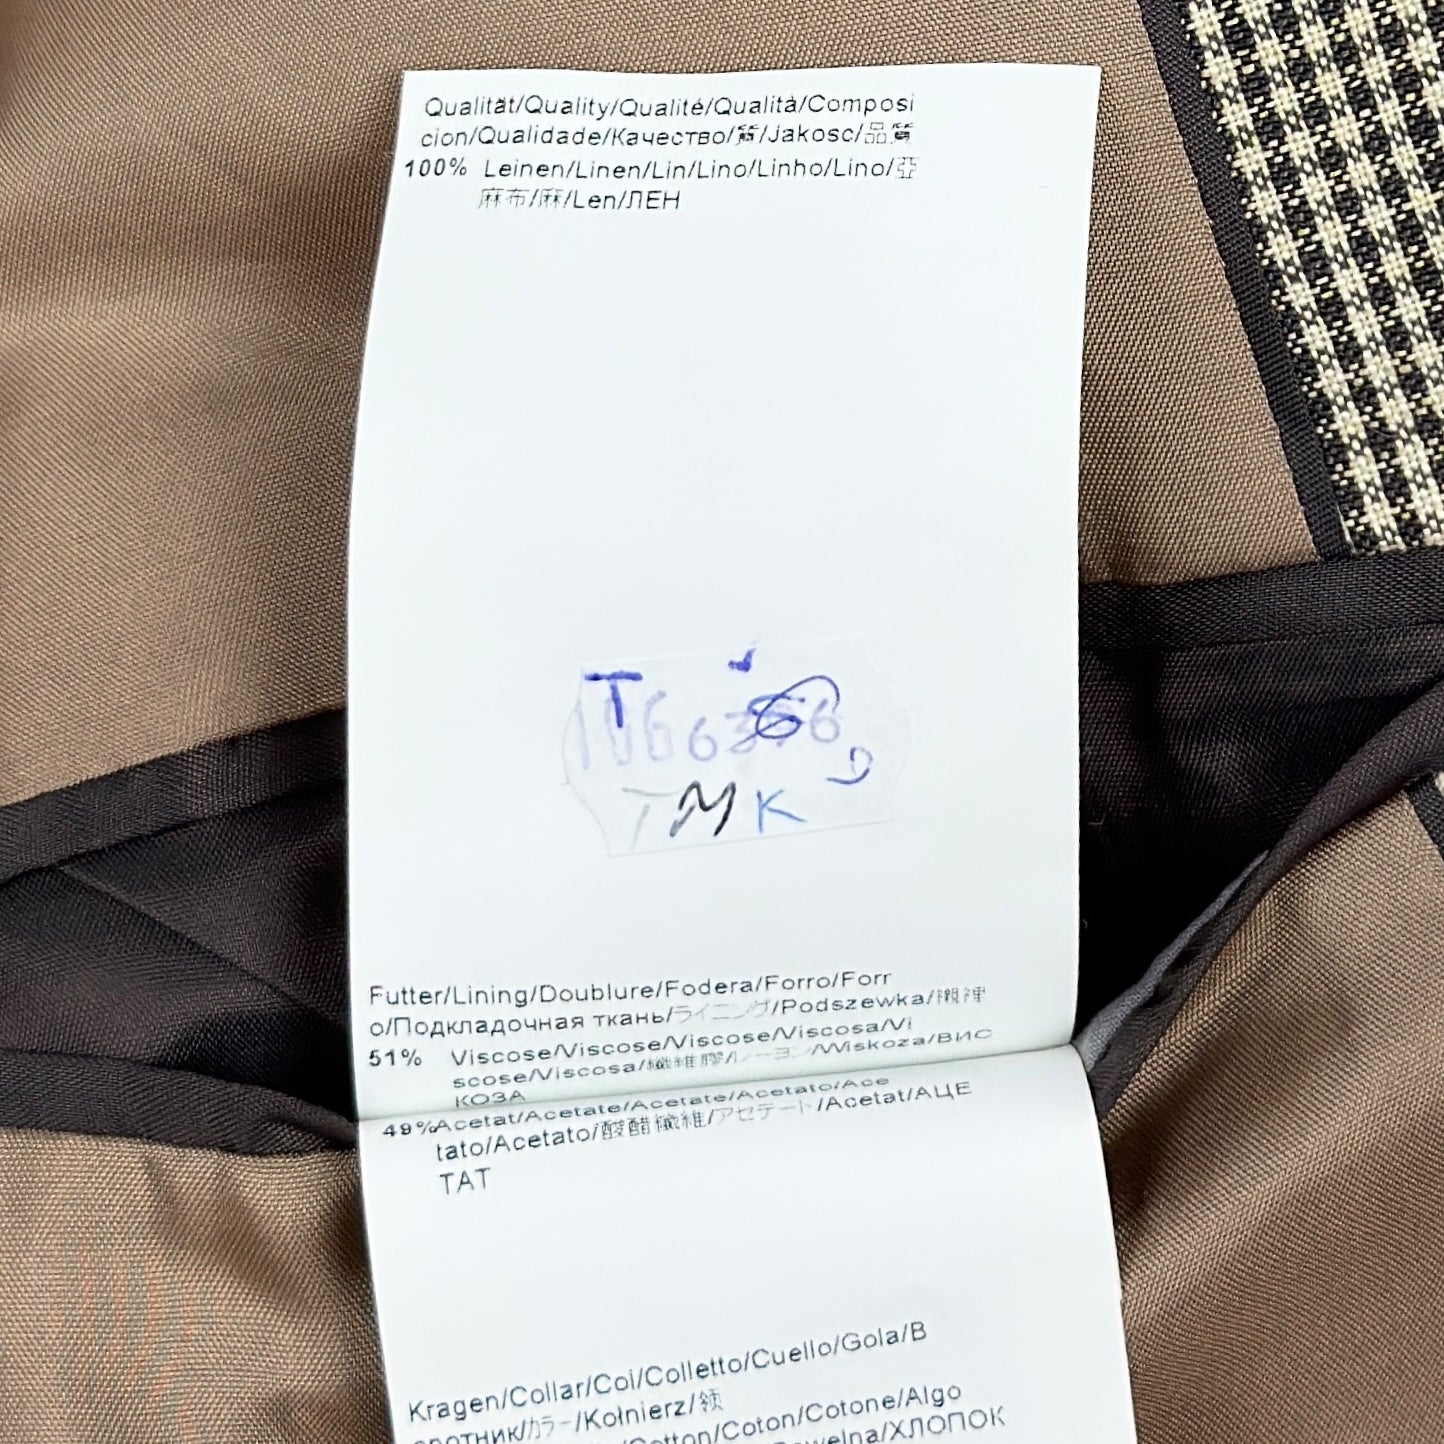 Qualität/Quality/Qualité/Qualità/Composi
cion/Qualidade/Качество/質/Jakosc/品質
100% Leinen/Linen/Lin/Lino/Linho/Lino/亞
麻布/麻/Len/ЛЕН
T
T M K
D
Futter/Lining/Doublure/Fodera/Forro/Forr
o/Подкладочная ткань/ライニング/Podszewka/
51% Viscose/Viscose/Viscose/Viscosa/Vi
scose/Viscosa/纖維膠/レーヨン/Wiskoza/ВИС
КОЗА
49%Acetat/Acetate/Acetate/Acetato/Ace
tato/Acetato/醋酸纖維/アセテート/Acetat/АЦЕ
ТАТ
Kragen/Collar/Col/Colletto/Cuello/Gola/В
оротник/カラー/Kołnierz/領
/Cotton/Coton/Cotone/Algo
/ХЛОПОК